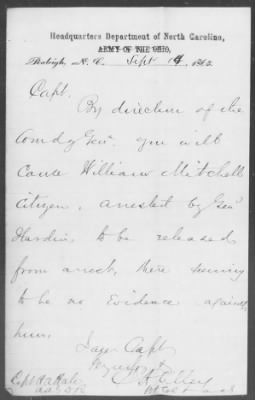 Headquarters Department of North Carolina,
ARMY OF THE OHIO,
Raleigh N. C. Sept 14, 1865.
Capt.
By direction of the
Comdg Genl. you will
cause William Mitchell
Citizen, arrested by Genl
Hardin, to be released
from arrest, there seeming
to be no Evidence against
him.
I am Capt